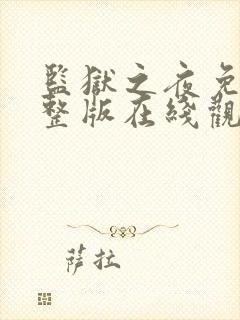 監獄之夜免
整版在綫觀
薩拉